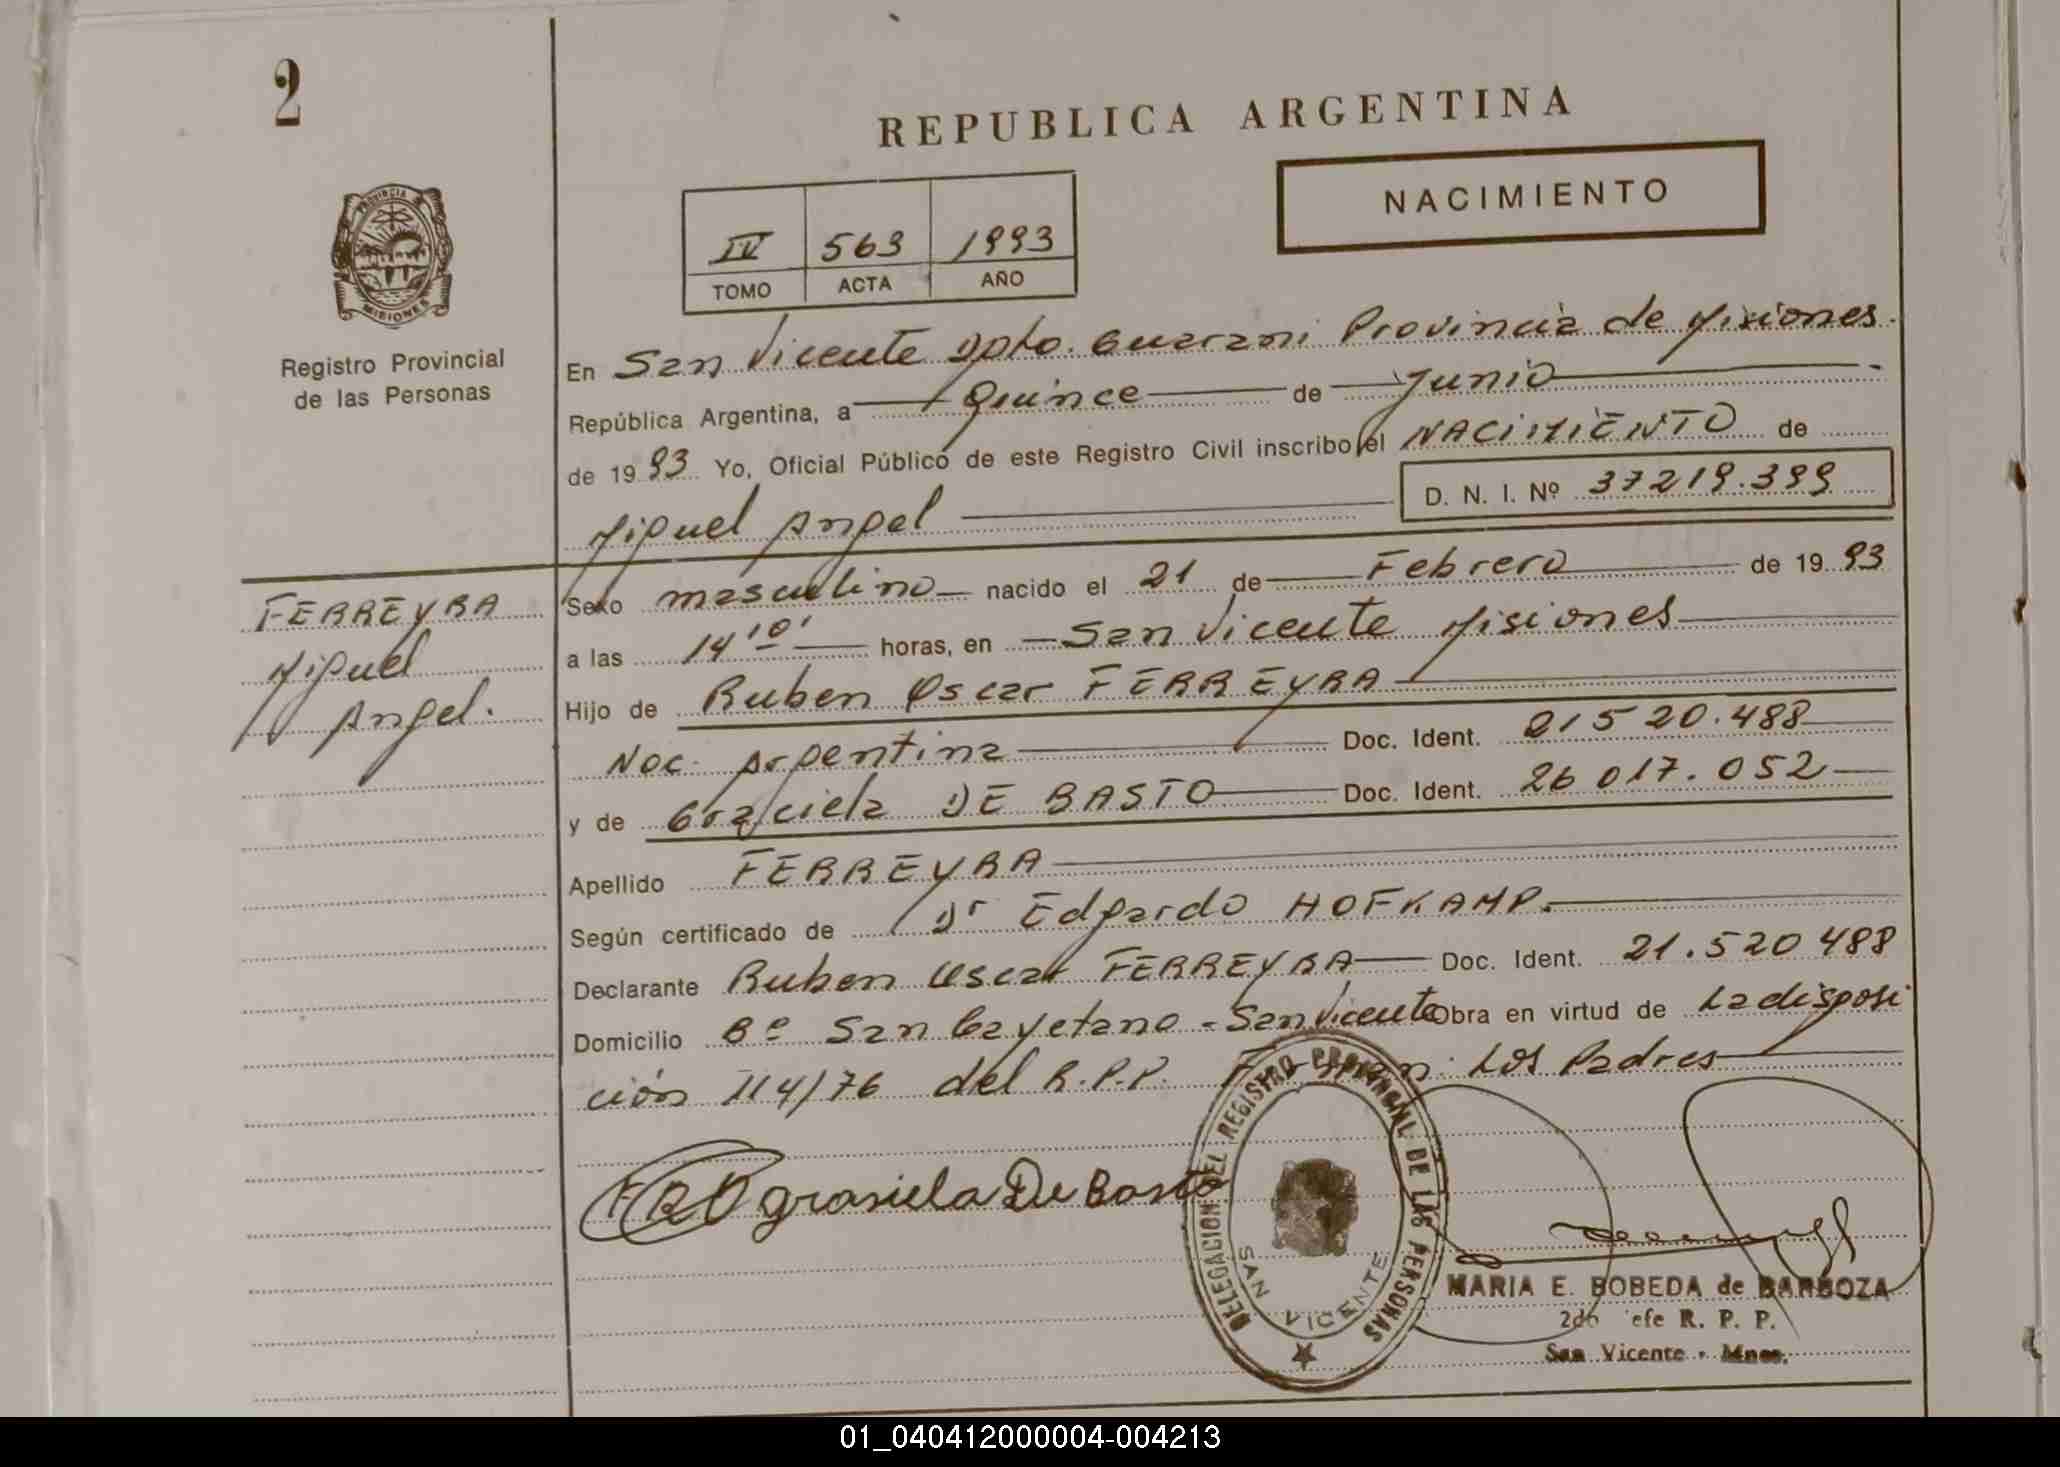 2
REPUBLICA ARGENTINA
NACIMIENTO
IV 563 1993
TOMO ACTA AÑO
PROVINCIA
MISIONES
Registro Provincial
de las Personas
En San Vicente Dpto. Guarani Provincia de Misiones.
República Argentina, a Quince de Junio
de 1993 Yo, Oficial Público de este Registro Civil inscribo el NACIMIENTO de
D. N. I. Nº 37219.399
Miguel Angel
FERREYRA
Miguel
Angel.
Sexo masculino nacido el 21 de Febrero de 1993
a las 14 10' horas, en San Vicente Misiones
Hijo de Ruben Oscar FERREYRA
Nac. Argentina Doc. Ident. 21520.488
y de Graciela DE BASTO Doc. Ident. 26017.052
Apellido FERREYRA
Según certificado de Dr Edgardo HOFKAMP.
Declarante Ruben Oscar FERREYRA Doc. Ident. 21.520488
Domicilio Bº San Cayetano - San Vicente Obra en virtud de La disposi
ción 114/76 del R.P.P. Los Padres
FRO grasiela De Basto
DELEGACION DEL REGISTRO PROVINCIAL DE LAS PERSONAS
SAN VICENTE
MARIA E. BOBEDA de BARBOZA
2do efe R. P. P.
San Vicente - Mnes.
01_040412000004-004213